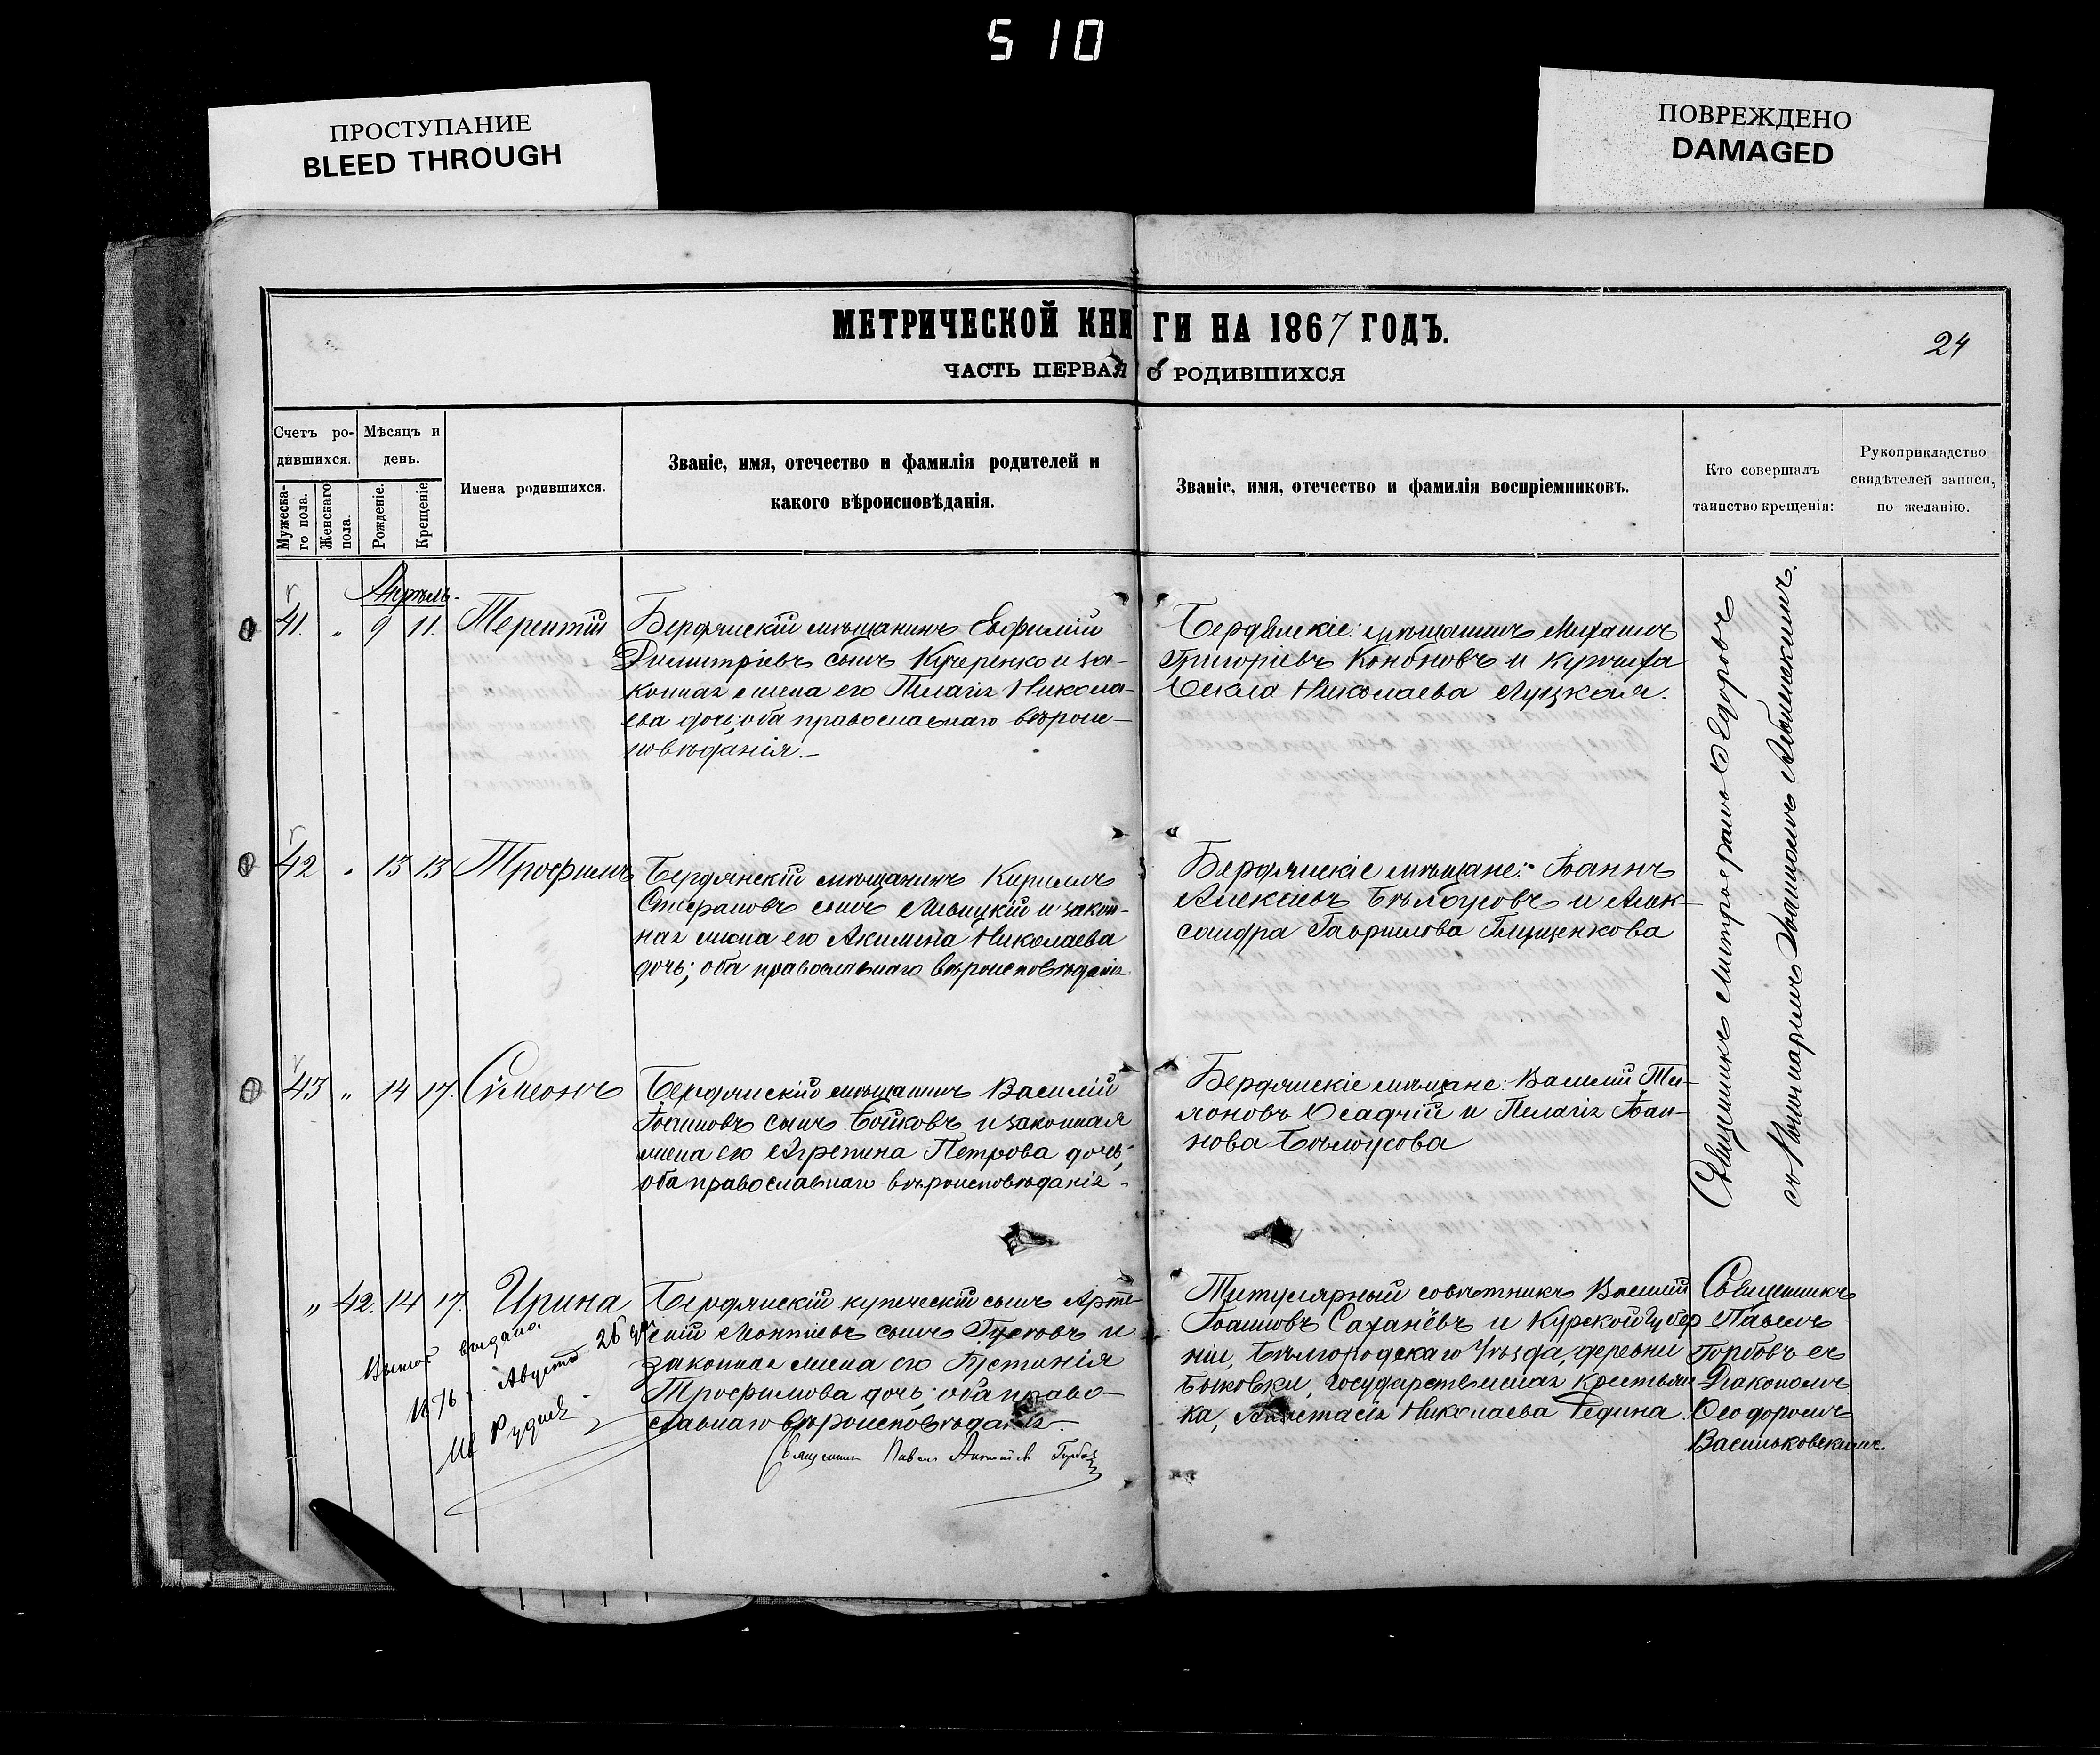 510
ПРОСТУПАНИЕ
BLEED THROUGH
ПОВРЕЖДЕНО
DAMAGED
МЕТРИЧЕСКОЙ КНИГИ НА 1867 ГОДЪ.
24
ЧАСТЬ ПЕРВАЯ О РОДИВШИХСЯ
Счетъ ро-
дившихся.
Мѣсяцъ и
день.
Мужеска-
го пола.
Женскаго
пола.
Рожденіе.
Крещеніе
Имена родившихся.
Званіе, имя, отечество и фамилія родителей и
какого вѣроисповѣданія.
Званіе, имя, отечество и фамилія воспріемниковъ.
Кто совершалъ
таинство крещенія:
Рукоприкладство
свидѣтелей записи,
по желанію.
Апрѣль.
41. „ 9 11. Терентій
Бердянскій мѣщанинъ Евфимій
Димитріевъ сынъ Кучеренко и за-
конная жена его Пелагія Никола-
ева дочь; оба православнаго вѣроис-
повѣданія.
Бердянскіе: мѣщанинъ Михаилъ
Григоріевъ Кононовъ и купчиха
Ѳекла Николаева Луцкая.
42 „ 13 13 Трофимъ
Бердянскій мѣщанинъ Кириллъ
Стефановъ сынъ Ливицкій и закон-
ная жена его Акилина Николаева
дочь; оба православнаго вѣроисповѣданія
Бердянскіе мѣщане: Іоаннъ
Алексѣевъ и Алек-
сандра Гаврилова Глущенкова
43 „ 14 17. Сѵмеонъ
Бердянскій мѣщанинъ Василій
Іоанновъ сынъ Бойковъ и законная
жена его Агрепина Петрова дочь;
оба православнаго вѣроисповѣданія.
Бердянскіе мѣщане: Василій Ти-
моновъ Осадчій и Пелагія Іоан-
нова Бѣлоусова
Священникъ Митрофанъ Ѳедоровъ
съ Пономаремъ Іоанномъ
„ 42. 14 17. Ирина
Бердянскій купеческій сынъ Арте-
мій Леонтіевъ сынъ Гусковъ и
законная жена его Іустинія
Трофимова дочь; оба право-
славнаго вѣроисповѣданія.
Священникъ Павелъ Горбов
Титулярный совѣтникъ Василій
Іоанновъ Саханёвъ и Курской Губер
ніи, Бѣлгородскаго Уѣзда, деревни
Быковки, Государственная Крестьян
ка, Анастасія Николаева Редина
Священникъ
Павелъ
Горбовъ съ
Діакономъ
Ѳеодоромъ
Васильковскимъ
выдана
1876 г. Августа 26 дня